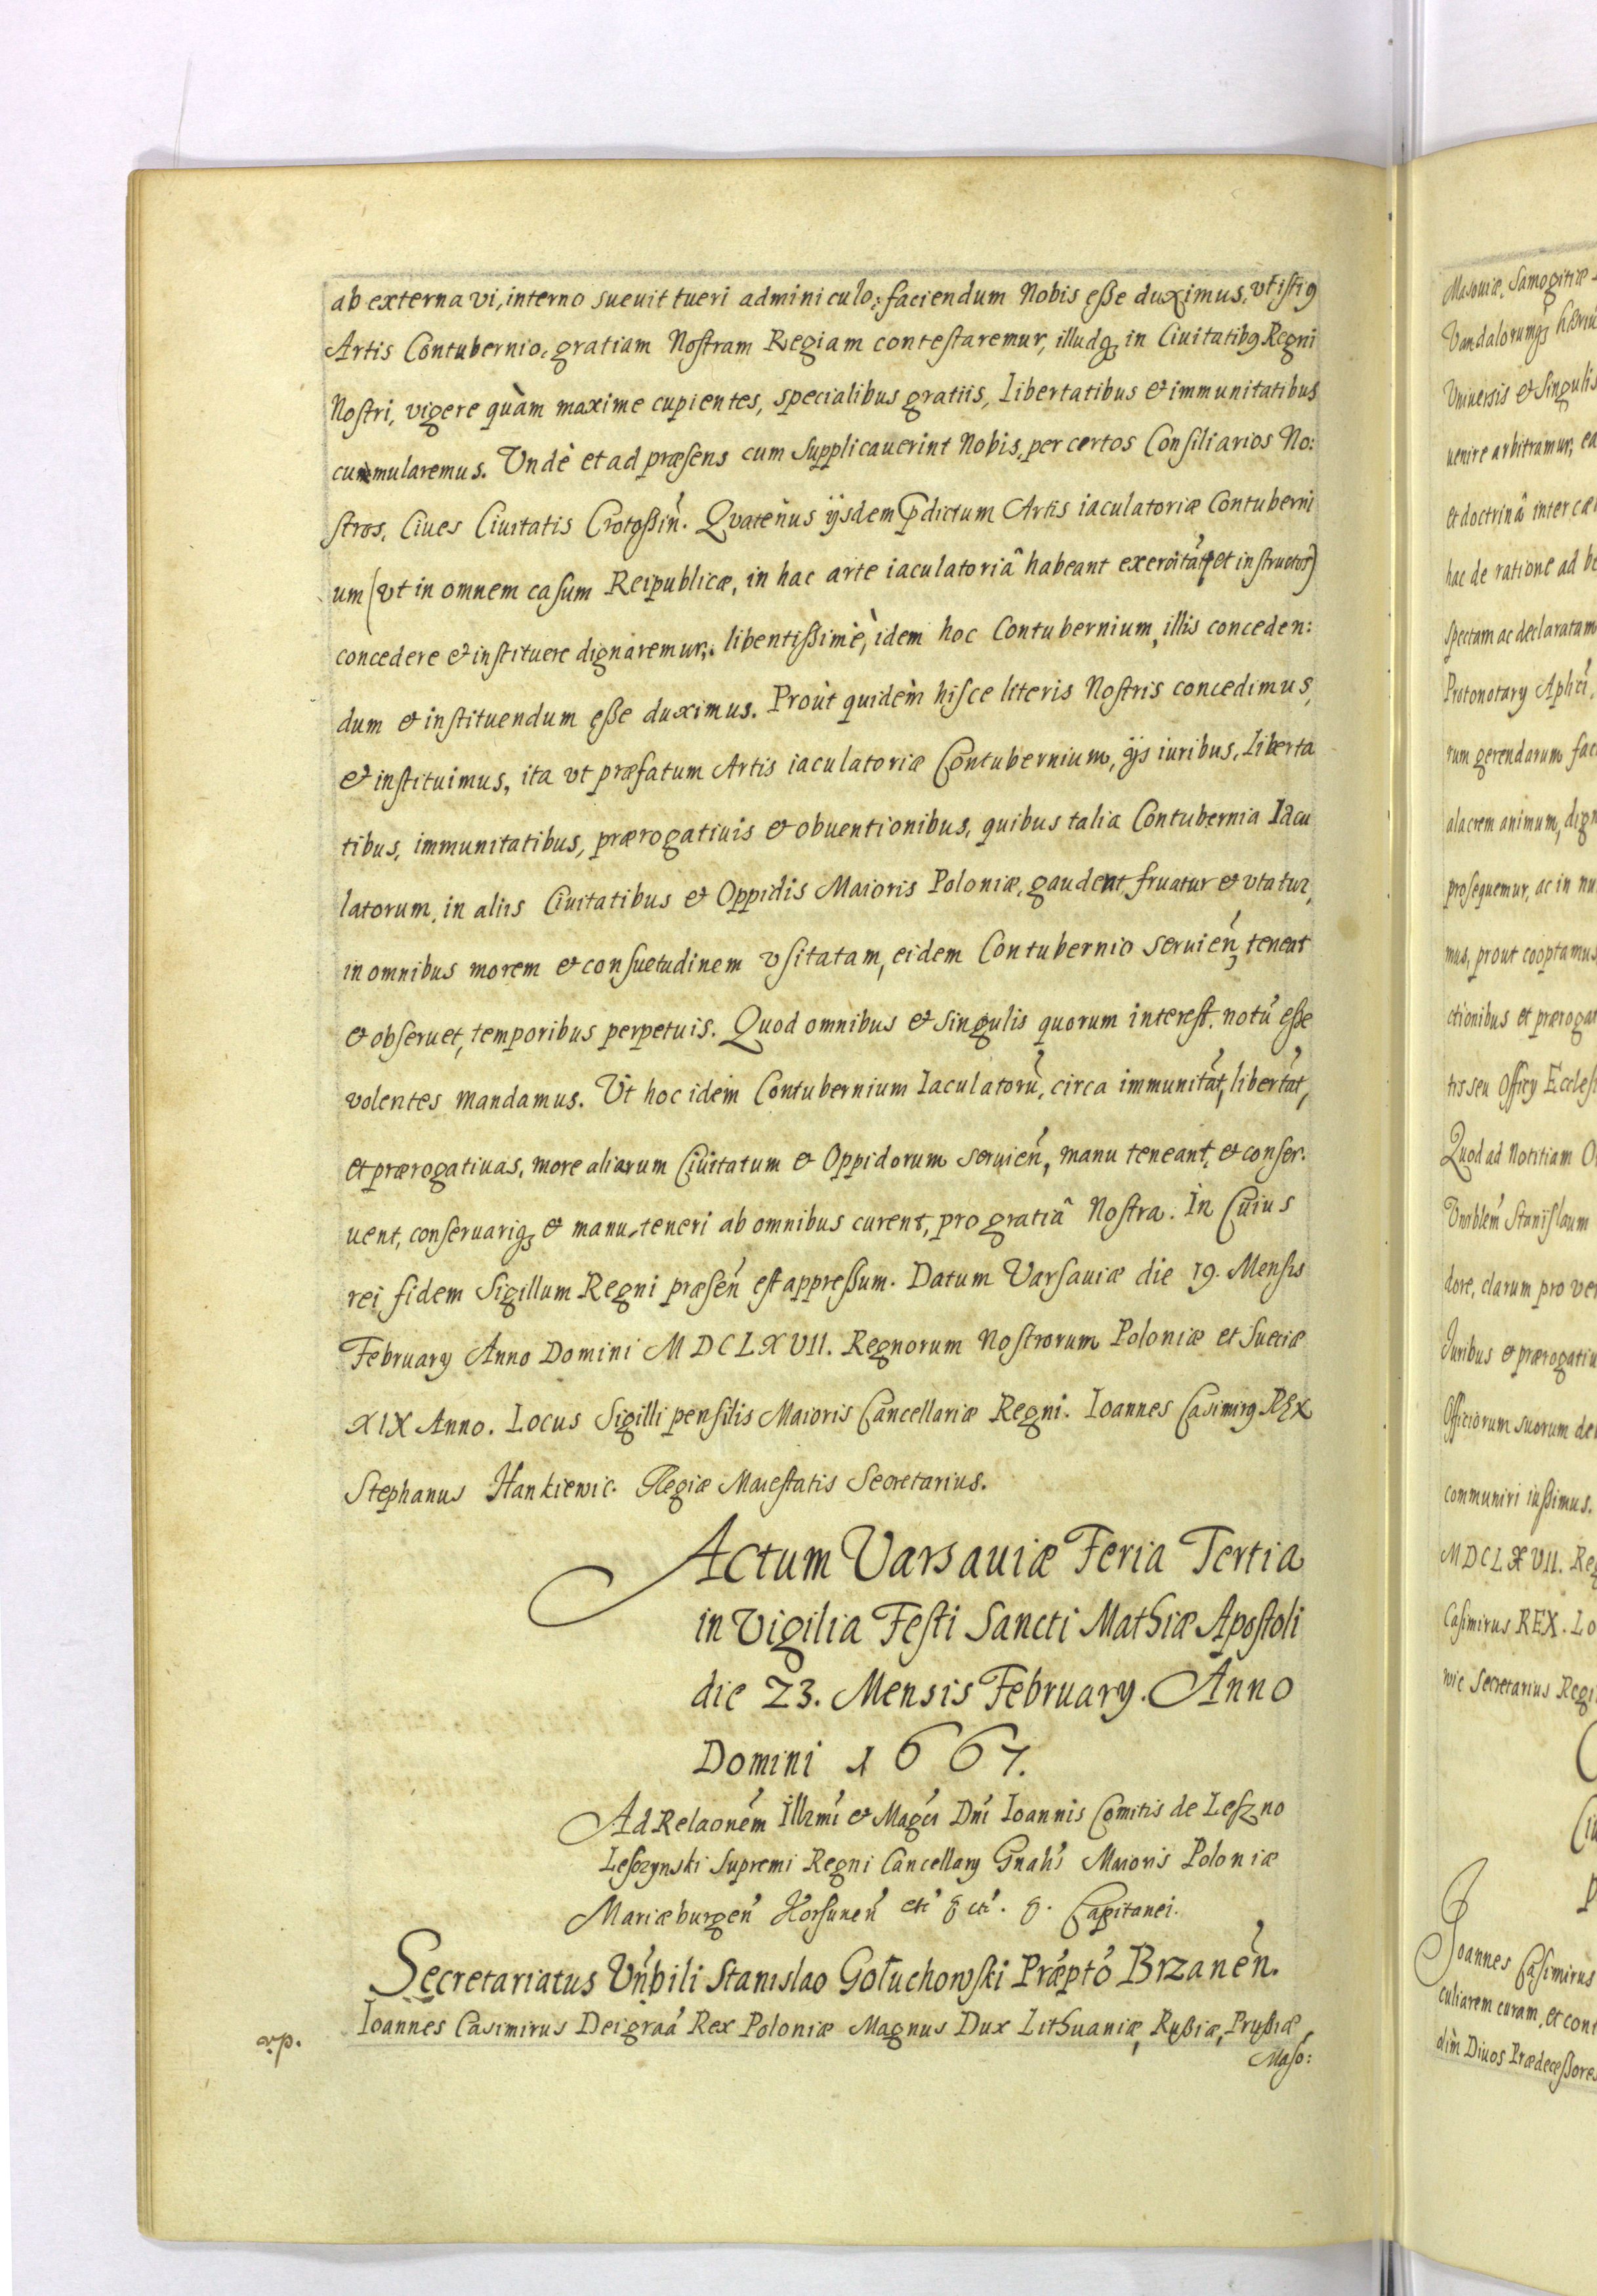 ab externa vi, interno sueuit tueri adminiculo; faciendum Nobis eße duximus, vt istiꝰ
Artis Contubernio, gratiam Nostram Regiam contestaremur, illudq́ꝫ in Ciuitatibꝰ Regni
Nostri, vigere quàm maxime cupientes, specialibus gratiis, libertatibus et immunitatibus
cummularemus. Vndè et ad præsens cum supplicauerint Nobis, per certos Consiliarios No:
stros, Ciues Ciuitatis Crotoßiń. Qvatenus ijsdem p̄dictum Artis iaculatoriæ Contuberni
um (vt in omnem casum Reipublicæ, in hac arte iaculatoriâ habeant exercitát, et instructos)
concedere et instituere dignaremur, libentißimè, idem hoc Contubernium, illis conceden:
dum et instituendum eße duximus. Prout quidem hisce literis Nostris concedimus,
et instituimus, ita vt præfatum Artis iaculatoriæ Contubernium, ijs iuribus, liberta
tibus, immunitatibus, prærogatiuis et obuentionibus, quibus talia Contubernia Iacu
latorum, in aliis Ciuitatibus et Oppidis Maioris Poloniæ, gaudent, fruatur et vtatur,
in omnibus morem et consuetudinem vsitatam, eidem Contubernio seruień, teneat
et obseruet, temporibus perpetuis. Quod omnibus et singulis quorum interest, notú eße
volentes mandamus. Vt hoc idem Contubernium Iaculatorú, circa immunitát, libertát,
et prærogatiuas, more aliarum Ciuitatum et Oppidorum seruień, manu teneant, et conser:
uent, conseruariq́ꝫ et manu teneri ab omnibus curent, pro gratiâ Nostra. In Cuius
rei fidem Sigillum Regni præseń est appreßum. Datum Varsauiæ die 19. Mensis
February Anno Domini MDCLXVII. Regnorum Nostrorum Poloniæ et Sueciæ
XIX Anno. Locus Sigilli pensilis Maioris Cancellariæ Regni. Ioannes Casimirꝰ REX
Stephanus Hankiewic. Regiæ Maiestatis Secretarius.
Actum Varsauiæ Feria Tertia
in Vigilia Festi Sancti Mathiæ Apostoli
die 23. Mensis February. Anno
Domini 1667.
Ad Relaoném Illrmi et Magci Dni Ioannis Comitis de Leszno
Leszczynski Supremi Regni Cancellary Gnalis Maioris Poloniæ
Mariæburgeń Korsuneń etc etc. Capitanei.
Secretariatus Vńbili Stanislao Gołuchowski Præptó Brzaneń.
Ioannes Casimirus Dei graá Rex Poloniæ Magnus Dux Lithuaniæ, Rußiæ, Prußiæ,
Maso:
Masouiæ, Samogitiæ
Vandalorumq́ꝫ
Vniuersis et singulis
uenire arbitramur, ea
et doctrinâ inter
hac de ratione ad
spectam ac declaratam
Protonotary
rum gerendarum
alacrem animum,
prosequemur, ac in
mus, prout cooptamus
ctionibus et
tis seu Officy
Quod ad Notitiam
Stanislaum
dore, clarum pro
Iuribus et
Officiorum suorum
communiri iußimus.
MDCLXVII.
Casimirus REX.
wic Secretarius
Ioannes Casimirus
culiarem curam, et
dim Diuos Prædeceßores